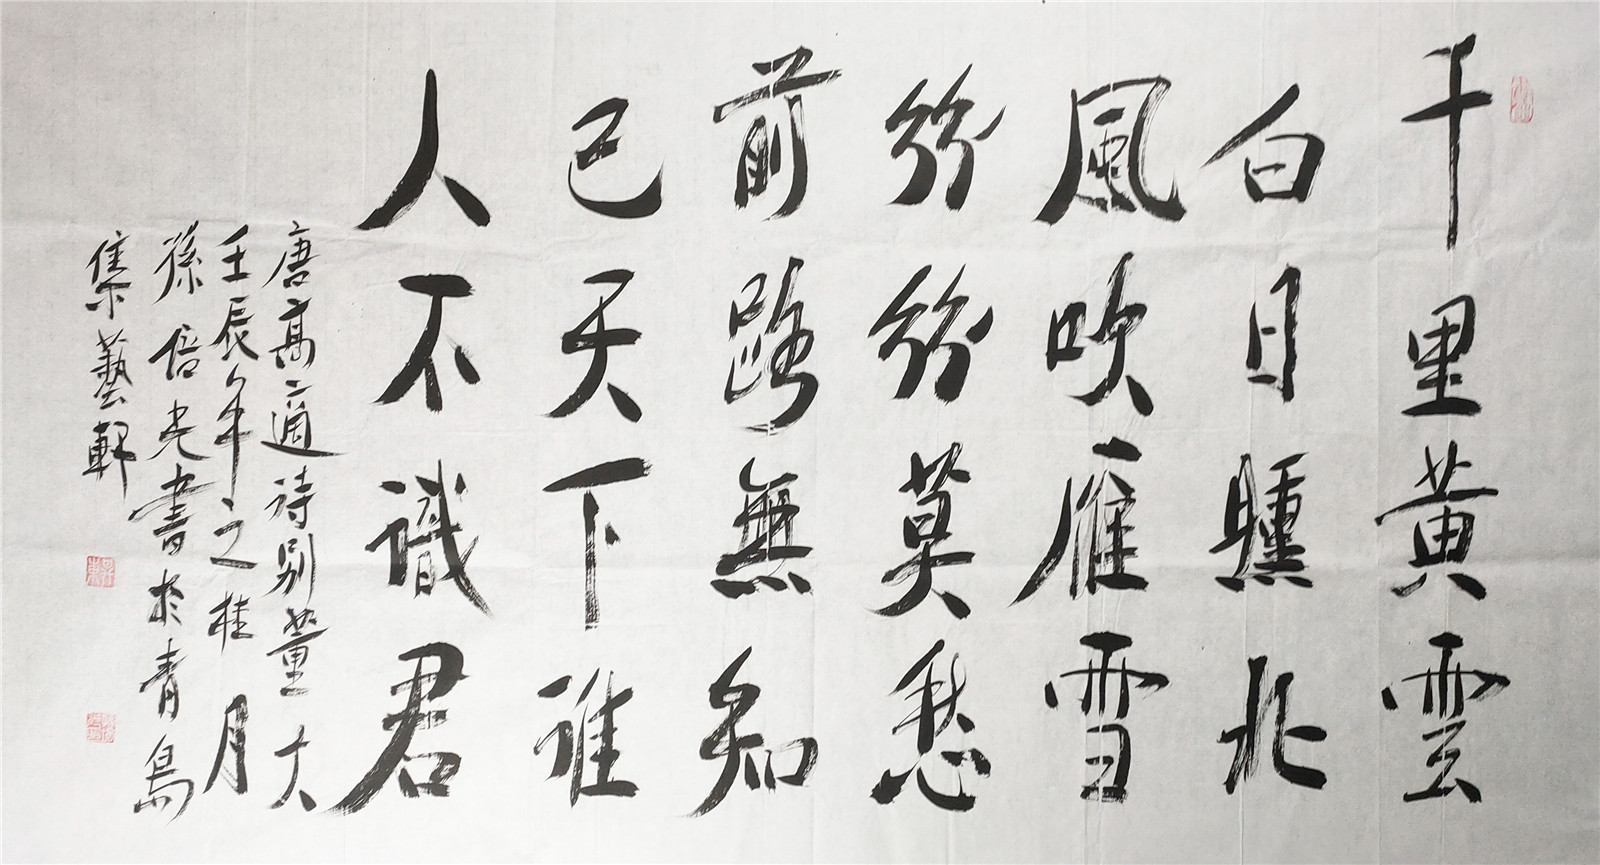 千里黃雲
白日曛北
風吹雁雪
紛紛莫愁
前路無知
己天下誰
人不識君
唐高適詩別董大
壬辰年之桂月
孫信光書於青島
集藝軒